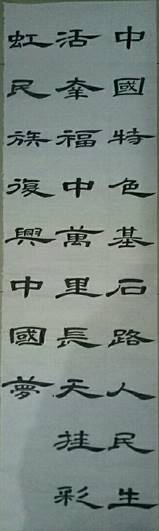 中國特色基石路人民生
活幸福中萬里長天挂彩
虹民族復興中國夢